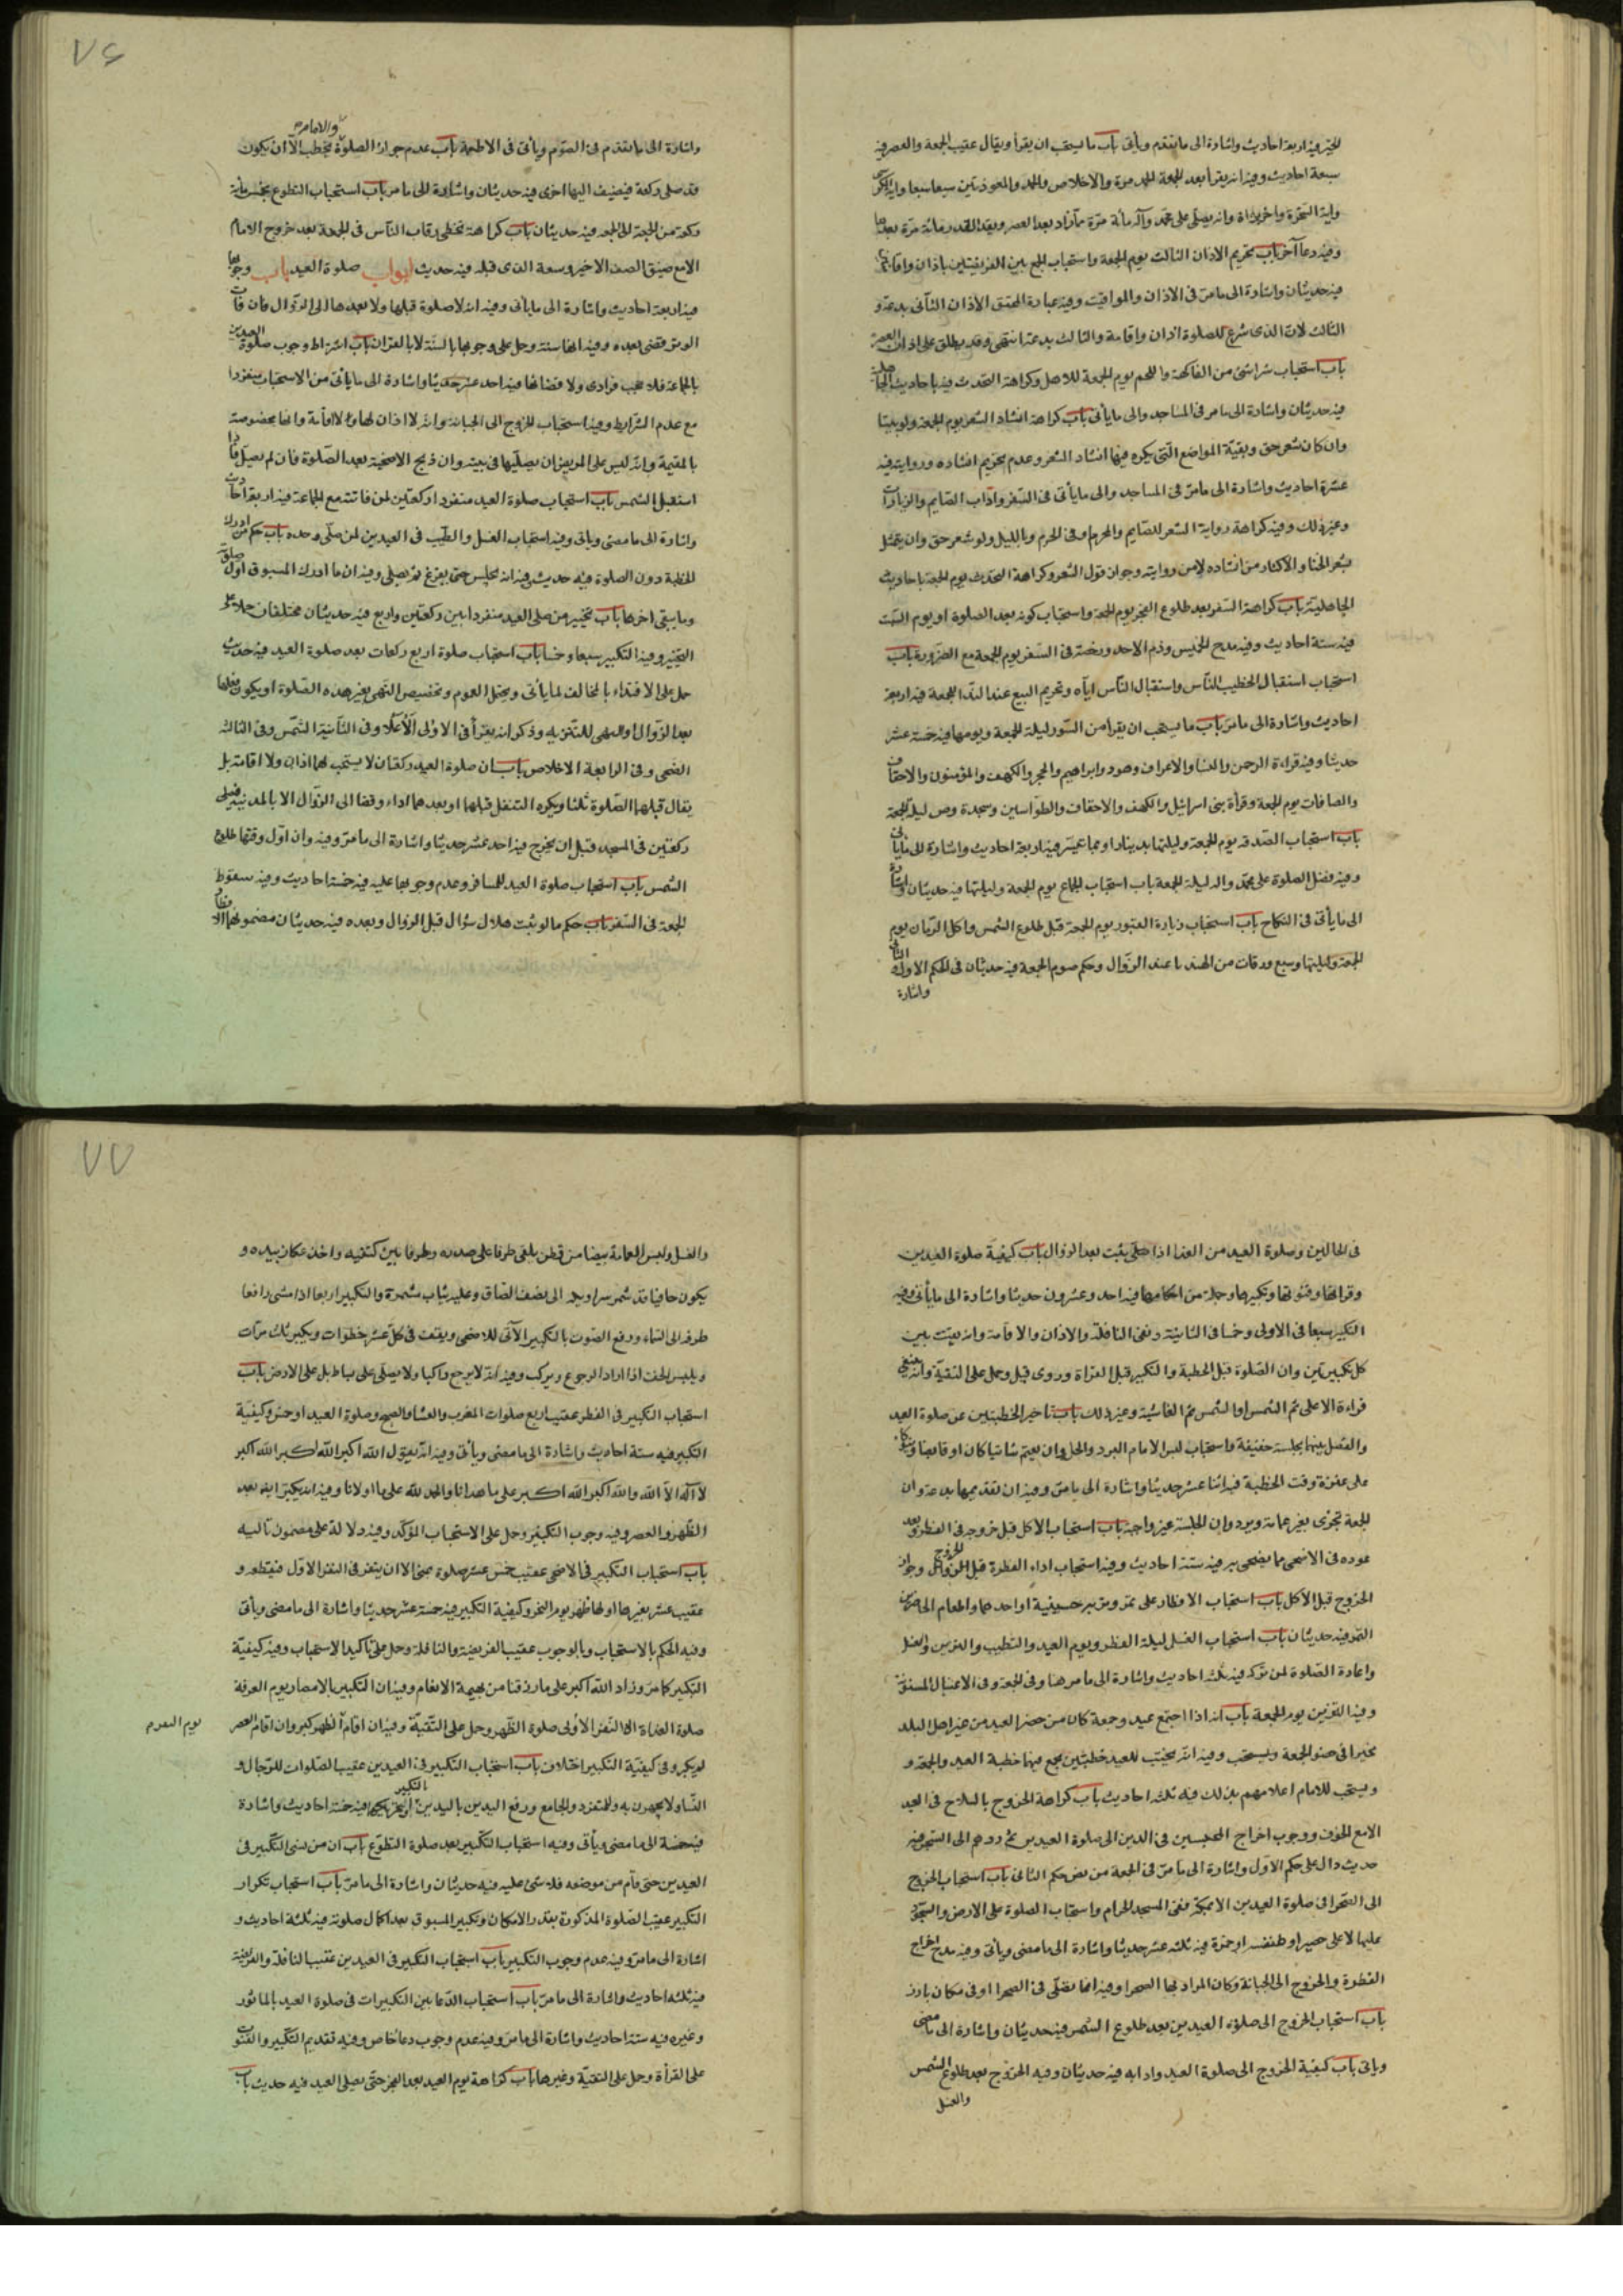 للخير فيه اربعة احاديث واشارة الى ما تقدم وياتى باب ما يستحب ان يقرأ ويقال عقيب الجمعة والعصر فيه
سبعة احاديث وفيه انه يقرأ بعد الجمعة الحمد مرة والاخلاص والحمد والمعوذتين سبعا سبعا واية الكرسى
واية السخرة واخر براءة وانه يصلى على محمد وآله مأة مرة بعد العصر
وفيه دعا آخر باب تحريم الاذان الثالث يوم الجمعة واستحباب الجمع بين الفريضتين باذان واقامتين
فيه حديثان واشارة الى ما مر فى الاذان والمواقيت وفيه عبارة المحقق الاذان الثانى بدعة و
الثالث لان الذى شرع للصلوة اذان واقامة والثالث بدعة انتهى وقد يطلق على اذان العصر
باب استحباب شراء شئ من الفاكهة واللحم يوم الجمعة للاهل وكراهة التحدث فيه باحاديث الجاهلية
فيه حديثان واشارة الى ما مر فى المساجد والى ما يأتى باب كراهة انشاد الشعر يوم الجمعة ولو بيتا
وان كان شعر حق وبقية المواضع التى يكره فيها انشاد الشعر وعدم تحريم انشاده وروايته فيه
عشرة احاديث واشارة الى ما مر فى المساجد والى ما يأتى فى السفر واداب الصايم والزيارات
وغير ذلك وفيه كراهة رواية الشعر للصايم والمحرم وفى الحرم وبالليل ولو شعر حق وان يتمثل
بشعر الخنا والاكثار من انشاده لا من روايته وجواز قول الشعر وكراهة التحدث يوم الجمعة باحاديث
الجاهلية باب كراهة السفر بعد طلوع الفجر يوم الجمعة واستحباب كونه بعد الصلوة او يوم السبت
فيه ستة احاديث وفيه مدح الخميس وذم الاحد ورخصة فى السفر يوم الجمعة مع الضرورة باب
استحباب استقبال الخطيب الناس واستقبال الناس اياه وتحريم البيع عند النداء للجمعة فيه اربعة
احاديث واشارة الى ما مر باب ما يستحب ان يقرأ من السور ليلة الجمعة ويومها فيه خمسة عشر
حديثا وفيه قراءة الرحمن والنسا والاعراف وهود وابراهيم والحجر والكهف والمؤمنون والاحقاف
والصافات يوم الجمعة وقرأة بنى اسرائيل والكهف والاحقاف والطواسين وسجدة وص ليلة الجمعة
باب استحباب الصدقه يوم الجمعة وليلتها بدينار او مما تيسر فيه اربعة احاديث واشارة الى ما ياتى
وفيه فضل الصلوة على محمد واله ليلة الجمعة باب استحباب الجماع يوم الجمعة وليلتها فيه حديثان واشارة
الى ما يأتى فى النكاح باب استحباب زيارة القبور يوم الجمعة قبل طلوع الشمس واكل الرمان يوم
الجمعة وليلتها وسبع ورقات من الهندباء عند الزوال وحكم صوم الجمعة فيه حديثان فى الحكم الاول والثانى
واشارة
٧٦
والامام
واشارة الى ما تقدم فى الصوم ويأتى فى الاطعمة باب عدم جواز الصلوة يخطب الا ان يكون
قد صلى ركعة فيضيف اليها اخرى فيه حديثان واشارة الى ما مر باب استحباب التطوع بخمسمأة
ركعة من الجمعة الى الجمعة فيه حديثان باب كراهة تخطى رقاب الناس فى الجمعة بعد خروج الامام
الا مع ضيق الصف الاخير وسعة الذى قبله فيه حديث ابواب صلوة العيد باب وجوبها
فيه اربعة احاديث واشارة الى ما يأتى وفيه انه لا صلوة قبلها ولا بعدها الى الزوال فان فات
الوتر قضى بعده وفيه انها سنة وحمل على وجوبها بالسنة لا بالقران باب اشتراط وجوب صلوة العيدين
بالجماعة فلا تجب فرادى ولا قضائها فيه احد عشر حديثا واشارة الى ما يأتى من الاستحباب منفردا
مع عدم الشرايط وفيه استحباب الخروج الى الجبانة وانه لا اذان لها ولا اقامة وانها مخصوصة
بالمقيمة وانه ليس على المريض ان يصليها فى بيته وان ذبح الاضحية بعد الصلوة فان لم يصل
استقبل الشمس باب استحباب صلوة العيد منفردا ركعتين لمن فاتته مع الجماعة فيه اربعة احاديث
واشارة الى ما مضى وياتى وفيه استحباب الغسل والطيب فى العيدين لمن صلى وحده باب حكم من ادرك
الخطبة دون الصلوة فيه حديث وفيه انه يجلس حتى يفرغ ثم يصلى وفيه ان ما ادرك المسبوق اول صلوته
وما يبقى اخرها باب تخيير من صلى العيد منفردا بين ركعتين واربع فيه حديثان مختلفان حملا على
التخيير وفيه التكبير سبعا وخمسا باب استحباب صلوة اربع ركعات بعد صلوة العيد فيه حديث
حمل على الاقتداء بالمخالف لما يأتى ويحتمل العموم وتخصيص النهى بغير هذه الصلوة او يكون فعلها
بعد الزوال او النهى للتنزيه وذكر انه يقرأ فى الاولى الاعلى وفى الثانية الشمس وفى الثالثة
الضحى وفى الرابعة الاخلاص باب ان صلوة العيد ركعتان لا يستحب لهما اذان ولا اقامة بل
يقال قبلها الصلوة ثلثا ويكره التنفل قبلها او بعدهما اداء وقضا الى الزوال الا بالمدينة فيصلى
ركعتين فى المسجد قبل ان يخرج فيه احد عشر حديثا واشارة الى ما مر وفيه وان اول وقتها طلوع
الشمس باب استحباب صلوة العيد للمسافر وعدم وجوبها عليه فيه خمسة احاديث وفيه سقوط
الجمعة فى السفر باب حكم ما لو ثبت هلال شوال قبل الزوال وبعده فيه حديثان مضمونهما
فى الحالين وصلوة العيد من الغد اذا ثبت بعد الزوال باب كيفية صلوة العيدين
وقراءتها وقنوتها وتكبيرها وجملة من احكامها فيه احد وعشرون حديثا واشارة الى ما يأتى وفيه
التكبير سبعا فى الاولى وخمسا فى الثانية ونفى النافلة والاذان والاقامة وانه يقنت بين
كل تكبيرتين وان الصلوة قبل الخطبة والتكبير قبل القراة وروى قبل وحمل على التقية وانه ينبغى
قراءة الاعلى ثم الشمس او الشمس ثم الغاشية وغير ذلك باب تاخير الخطبتين عن صلوة العيد
والفصل بينهما بجلسة خفيفة واستحباب لبس الامام البرد والحلة وان يعتم شاتيا كان او قايظا ويتوكأ
على عنزة وقت الخطبة فيه اثنا عشر حديثا واشارة الى ما مر وفيه ان تقديمها بدعة وان
الجمعة تجزى بغير عمامة وبرد وان الجلسة غير واجبة باب استحباب الاكل قبل خروجه فى الفطر وبعد
عوده فى الاضحى مما يضحى به فيه ستة احاديث وفيه استحباب اداء الفطرة قبل الخروج وجواز
الخروج قبل الاكل باب استحباب الافطار على تمر وتربة حسينية او احدهما واطعام الحاضرين
التمر فيه حديثان باب استحباب الغسل ليلة الفطر ويوم العيد والتطيب والتزين والغسل
واعادة الصلوة لمن تركه فيه ثلثة احاديث واشارة الى ما مر هنا وفى الجمعة وفى الاغسال المسنونة
وفيه التزين يوم الجمعة باب انه اذا اجتمع عيد وجمعة كان من حضر العيد من غير اهل البلد
مخيرا فى حضور الجمعة ويستحب وفيه انه يخطب للعيد خطبتين يجمع فيهما خطبة العيد والجمعة و
ويستحب للامام اعلامهم بذلك فيه ثلثة احاديث باب كراهة الخروج بالسلاح فى العيد
الا مع الخوف ووجوب اخراج المحبسين فى الدين الى صلوة العيدين ثم ردهم الى السجن فيه
حديث دال على حكم الاول واشارة الى ما مر فى الجمعة من نص حكم الثانى باب استحباب الخروج
الى الصحرا فى صلوة العيدين الا بمكة ففى المسجد الحرام واستحباب الصلوة على الارض والسجود
عليها لا على حصير او طنفسه او خمرة فيه ثلثة عشر حديثا واشارة الى ما مضى وياتى وفيه مدح اخراج
الفطرة والخروج الى الجبانة وكان المراد بها الصحرا وفيه انما يصلى فى الصحرا او فى مكان بارز
باب استحباب الخروج الى صلوة العيدين بعد طلوع الشمس فيه حديثان واشارة الى ما مضى
وياتى باب كيفية الخروج الى صلوة العيد وادابه فيه حديثان وفيه الخروج بعد طلوع الشمس
والغسل
٧٧
والغسل ولبس العمامة بيضا من قطن يلقى طرفا على صدره وطرفا بين كتفيه واخذ عكاز بيده و
يكون حافيا قد شمر سراويله الى نصف الساق وعليه ثياب مشمرة والتكبير اربعا اذا مشى رافعا
طرفه الى السماء ورفع الصوت بالتكبير الآتى للاضحى ويقف فى كل عشر خطوات ويكبر ثلث مرات
ويلبس الخف اذا اراد الرجوع ويركب وفيه انه لا يرجع راكبا ولا يصلى على بساط بل على الارض باب
استحباب التكبير فى الفطر عقيب اربع صلوات المغرب والعشا والصبح وصلوة العيد او خمس وكيفية
التكبير فيه ستة احاديث واشارة الى ما مضى وياتى وفيه انه يقول الله اكبر الله اكبر الله اكبر
لا اله الا الله والله اكبر الله اكبر على ما هدانا والحمد لله على ما اولانا وفيه انه يكبر ايضا بعد
الظهر والعصر وفيه وجوب التكبير وحمل على الاستحباب المؤكد وفيه دلالة على مضمون تاليه
باب استحباب التكبير فى الاضحى عقيب خمس عشر صلوة بمنى الا ان ينفر فى النفر الاول فيقطعه و
عقيب عشر بغيرها اولها ظهر يوم النحر وكيفية التكبير فيه خمسة عشر حديثا واشارة الى ما مضى وياتى
وفيه الحكم بالاستحباب وبالوجوب عقيب الفريضة والنافلة وحمل على تأكيد الاستحباب وفيه كيفية
التكبير كما مر وزاد الله اكبر على ما رزقنا من بهيمة الانعام وفيه ان التكبير بالامصار يوم العرفة
صلوة الغداة الى النفر الاولى صلوة الظهر وحمل على التقية وفيه ان اقام الظهر كبر وان اقام العصر
لم يكبر وفى كيفية التكبير اختلاف باب استحباب التكبير فى العيدين عقيب الصلوات للرجال و
النساء ولا يجهرن به وللمنفرد والجامع ورفع اليدين التكبير او تحريكهما فيه خمسة احاديث واشارة
فيه خمسة الى ما مضى وياتى وفيه استحباب التكبير بعد صلوة التطوع باب ان من نسى التكبير فى
العيدين حتى قام من موضعه فلا شئ عليه فيه حديثان واشارة الى ما مر باب استحباب تكرار
التكبير عقيب الصلوة المذكورة بقدر الامكان وتكبير المسبوق بعد اكمال صلوته فيه ثلثة احاديث و
اشارة الى ما مر وفيه عدم وجوب التكبير باب استحباب التكبير فى العيدين عقيب النافلة والفريضة
فيه ثلثة احاديث واشارة الى ما مر باب استحباب الدعا بين التكبيرات فى صلوة العيد بالماثور
وغيره فيه ستة احاديث واشارة الى ما مر وفيه عدم وجوب دعا خاص وفيه تقديم التكبير والقنوت
على القرأة وحمل على التقية وغيرها باب كراهة يوم العيد بعد الفجر حتى يصلى العيد فيه حديث باب